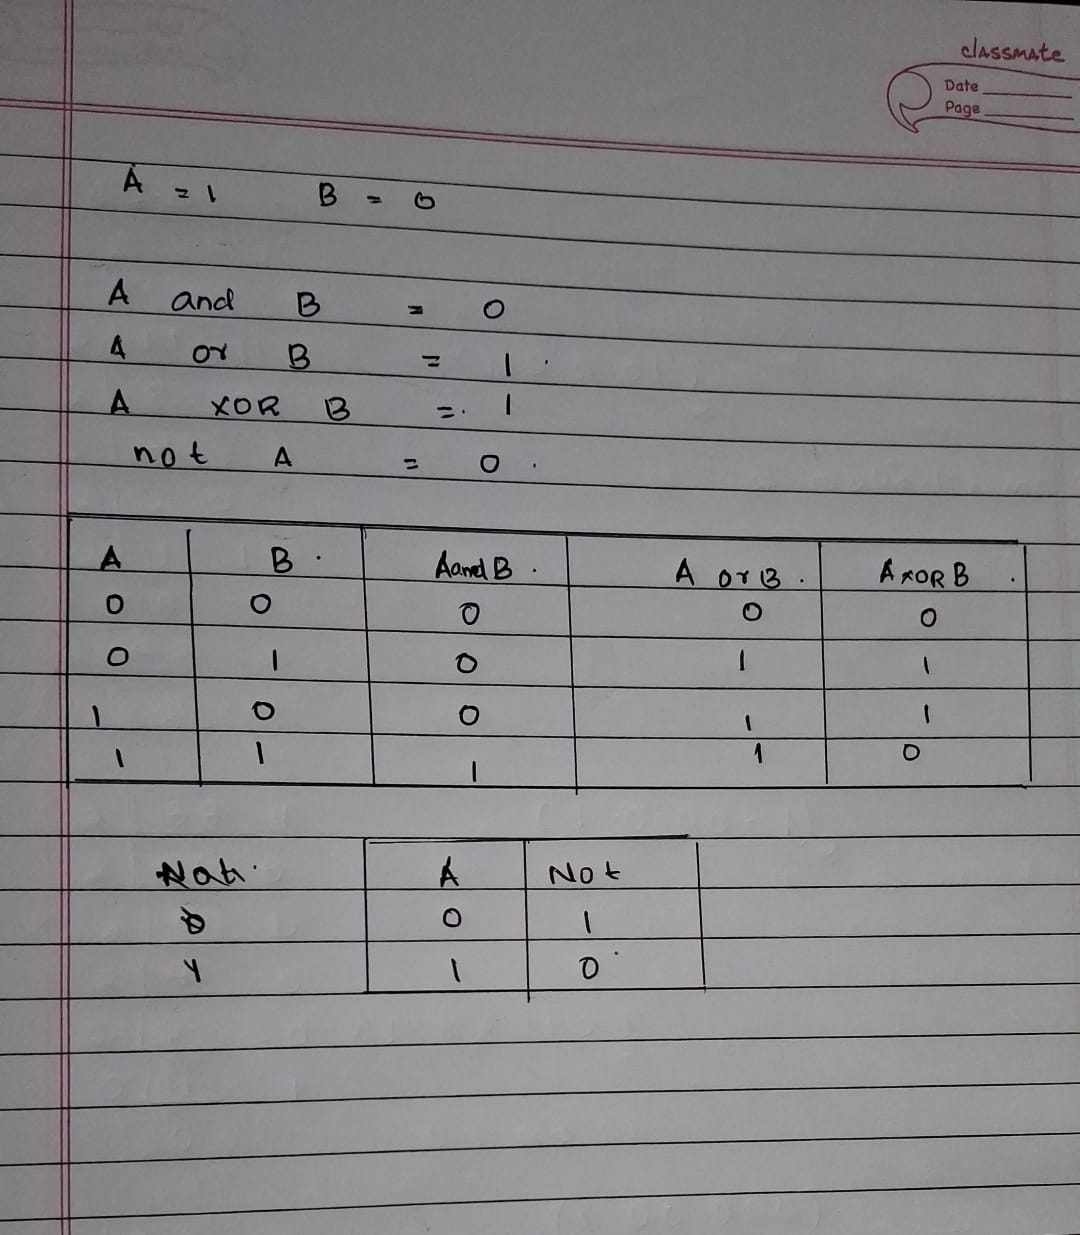 classmate
Date
Page
A = 1 B = 0
A and B = 0
A or B = 1
A XOR B = 1
not A = 0
A B Aand B A or B A XOR B
0 0 0 0 0
0 1 0 1 1
1 0 0 1 1
1 1 1 1 0
A Not
0 1
1 0